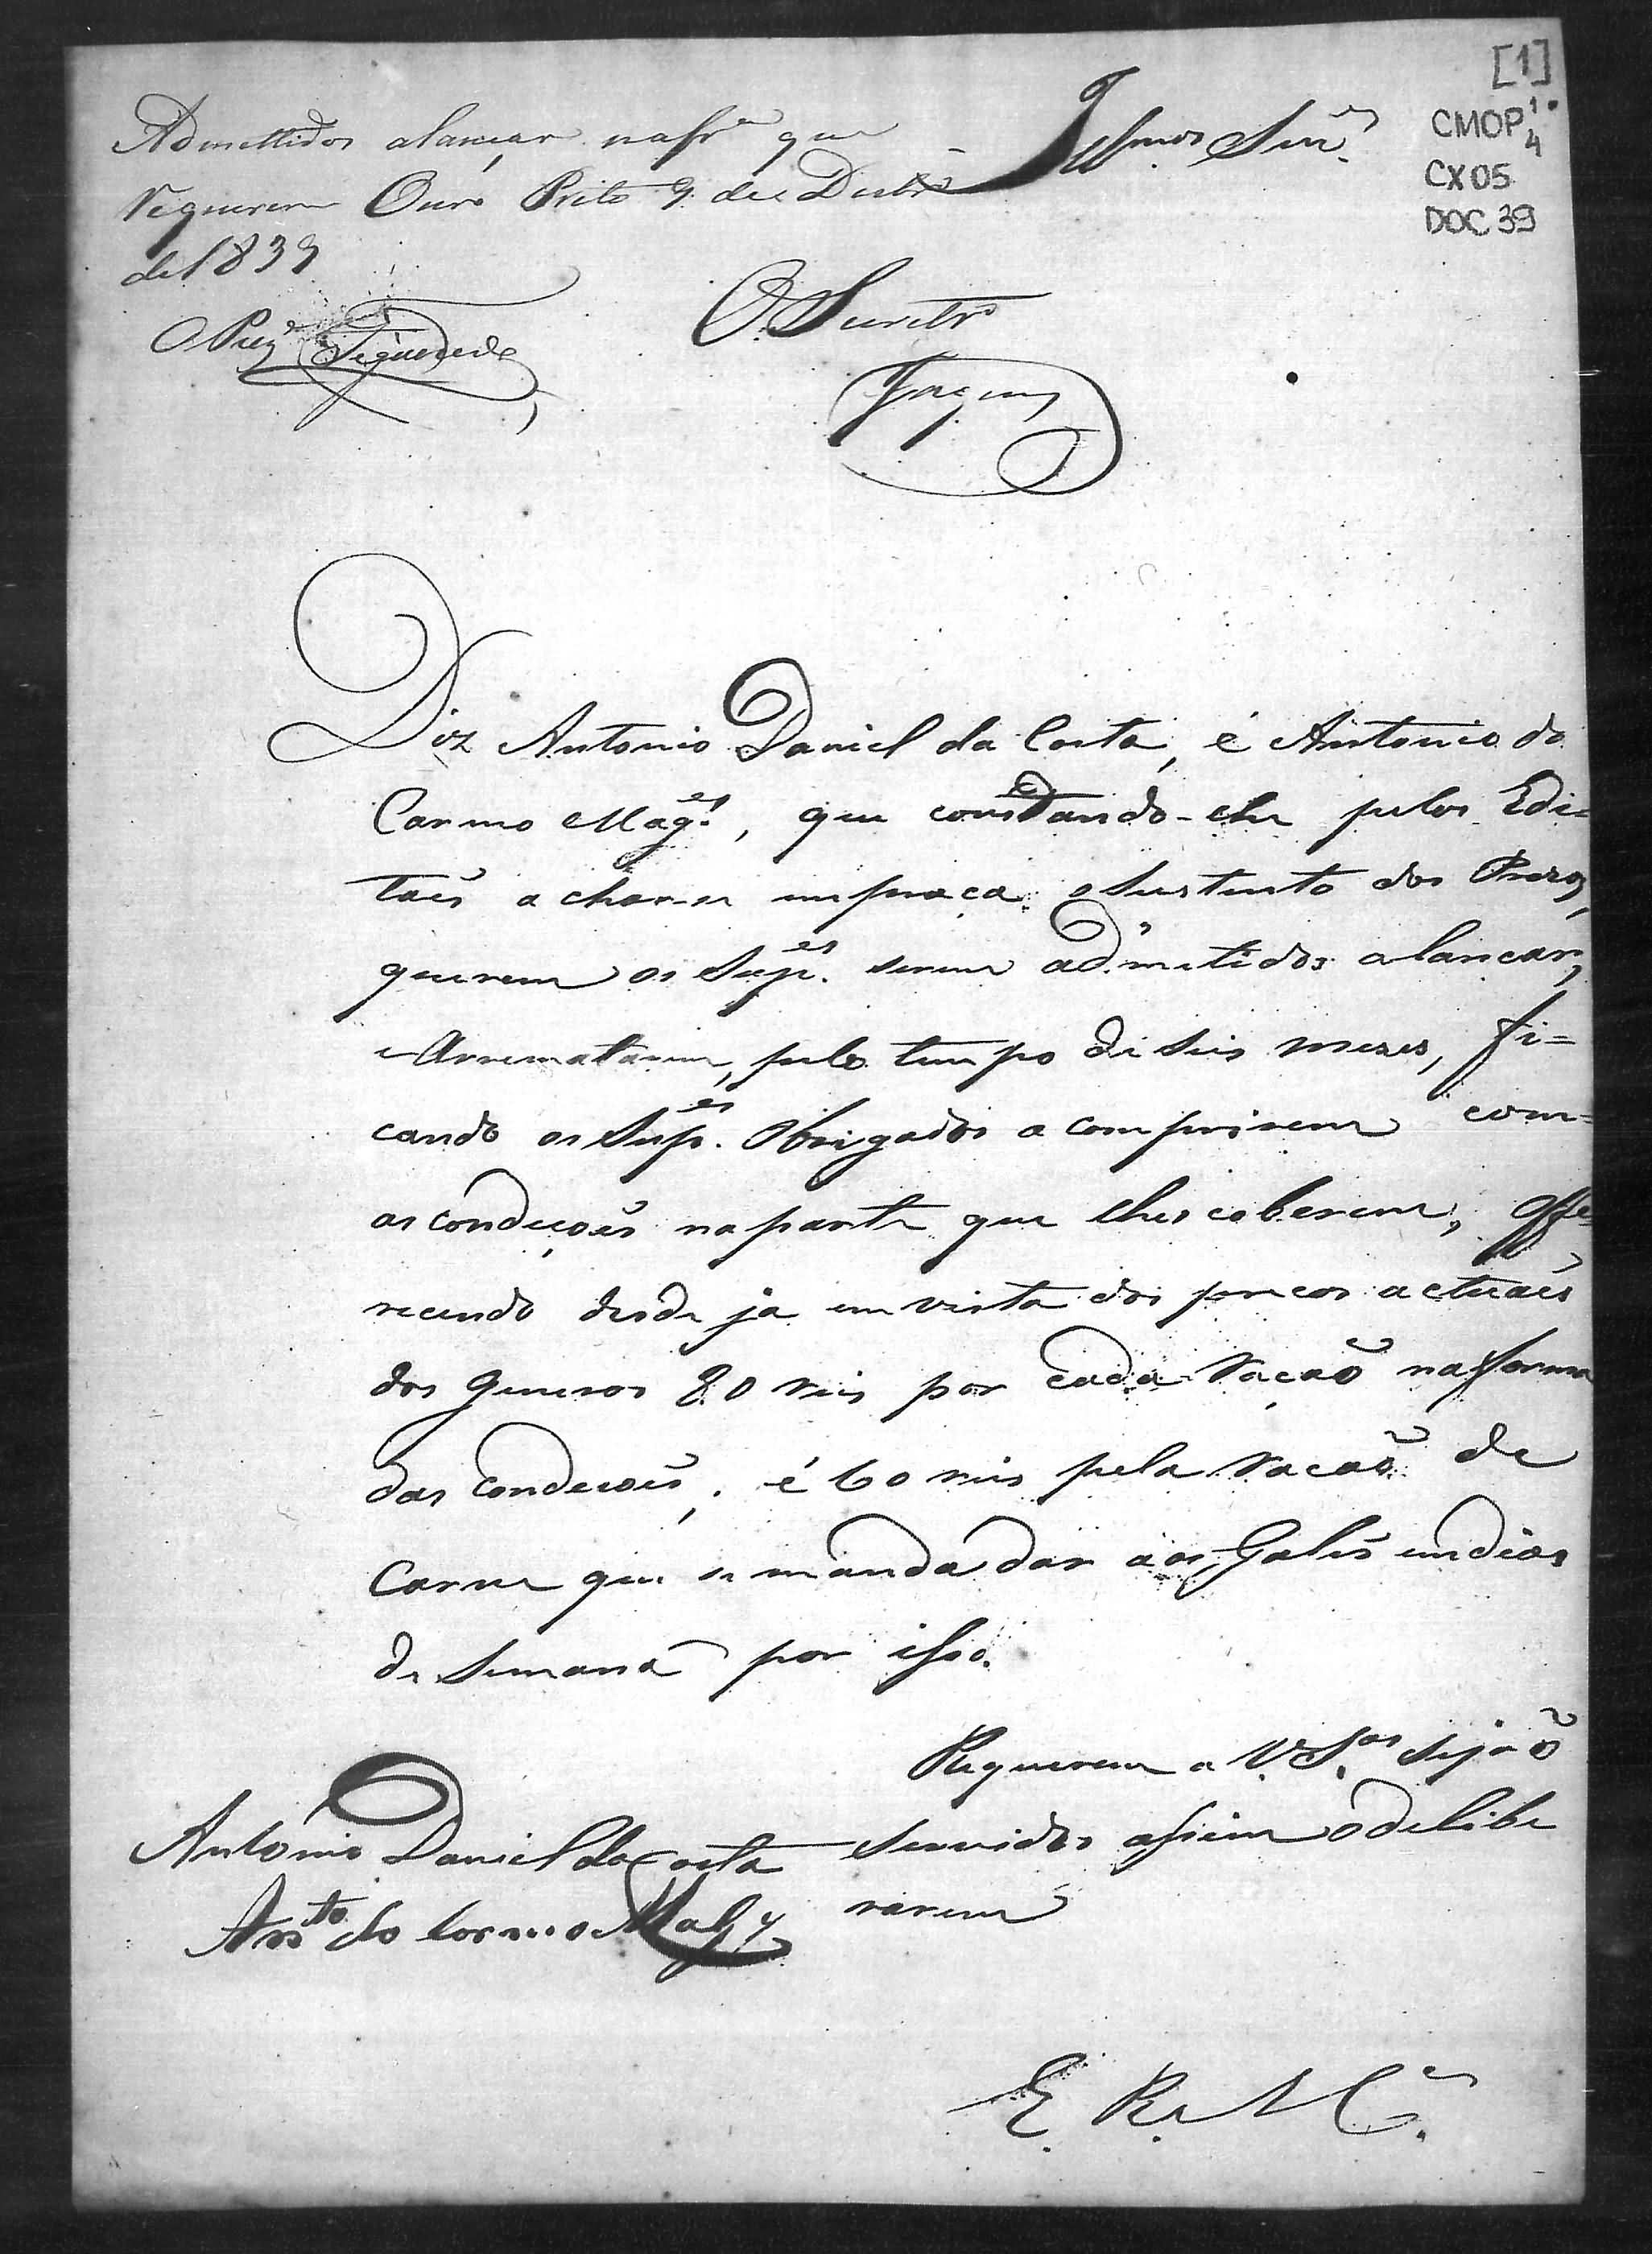 [1]
CMOP 1.4
CX 05
DOC 39
Illmos Snr.es
Admettidos alançar na fr.a que
requerem Ouro Preto 9 de Dezbr.o
de 1839
O Prez.e Figueredo
O Secretr.o
Diz Antonio Daniel da Costa, é Antonio do
Carmo Mag.es, que constando-lhe pelos Edi=
taes achar-se em praça o Sustento dos Prezos,
querem os Sup.es serem admetidos alancar,
e Arrematarem, pelo tempo de seis mezes, fi=
cando os Sup.es Obrigados a comprirem com=
as condiçoẽs na parte que lhes coberem, offe=
recendo desde já em vista dos precos actuaes
dos Generos 80 reis por cada Ração na forma
das Condecoẽs, é 60 reis pela Racão de
Carne que se manda dar aos Galés em dias
de Semana por isso.
Requerem a V. S.as Sejão
Servidos assim o delibe
rarem
Antonio Daniel da Costa
Ant.to do Carmo Malg.
E. R. M.ce